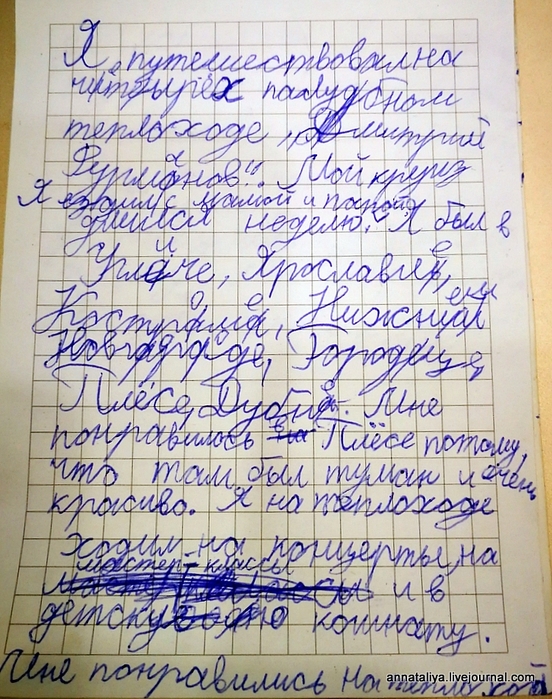 Я путешествовал на
чётырёх палудбном
теплоходе „Дмитрий
Фурманов". Мой круиз
Я ездил с мамой и папой
длился неделю. Я был в
Угличе, Ярославле,
Костроме, Нижнем
Новгороде, Городце,
Плёсе, Дубне. Мне
понравилось в Плёсе потому,
что там был туман и очень
красиво. Я на теплоходе
ходил на концерты, на
мастер-классы
и в
детскую комнату.
Мне понравились на теплоход
annataliya.livejournal.com